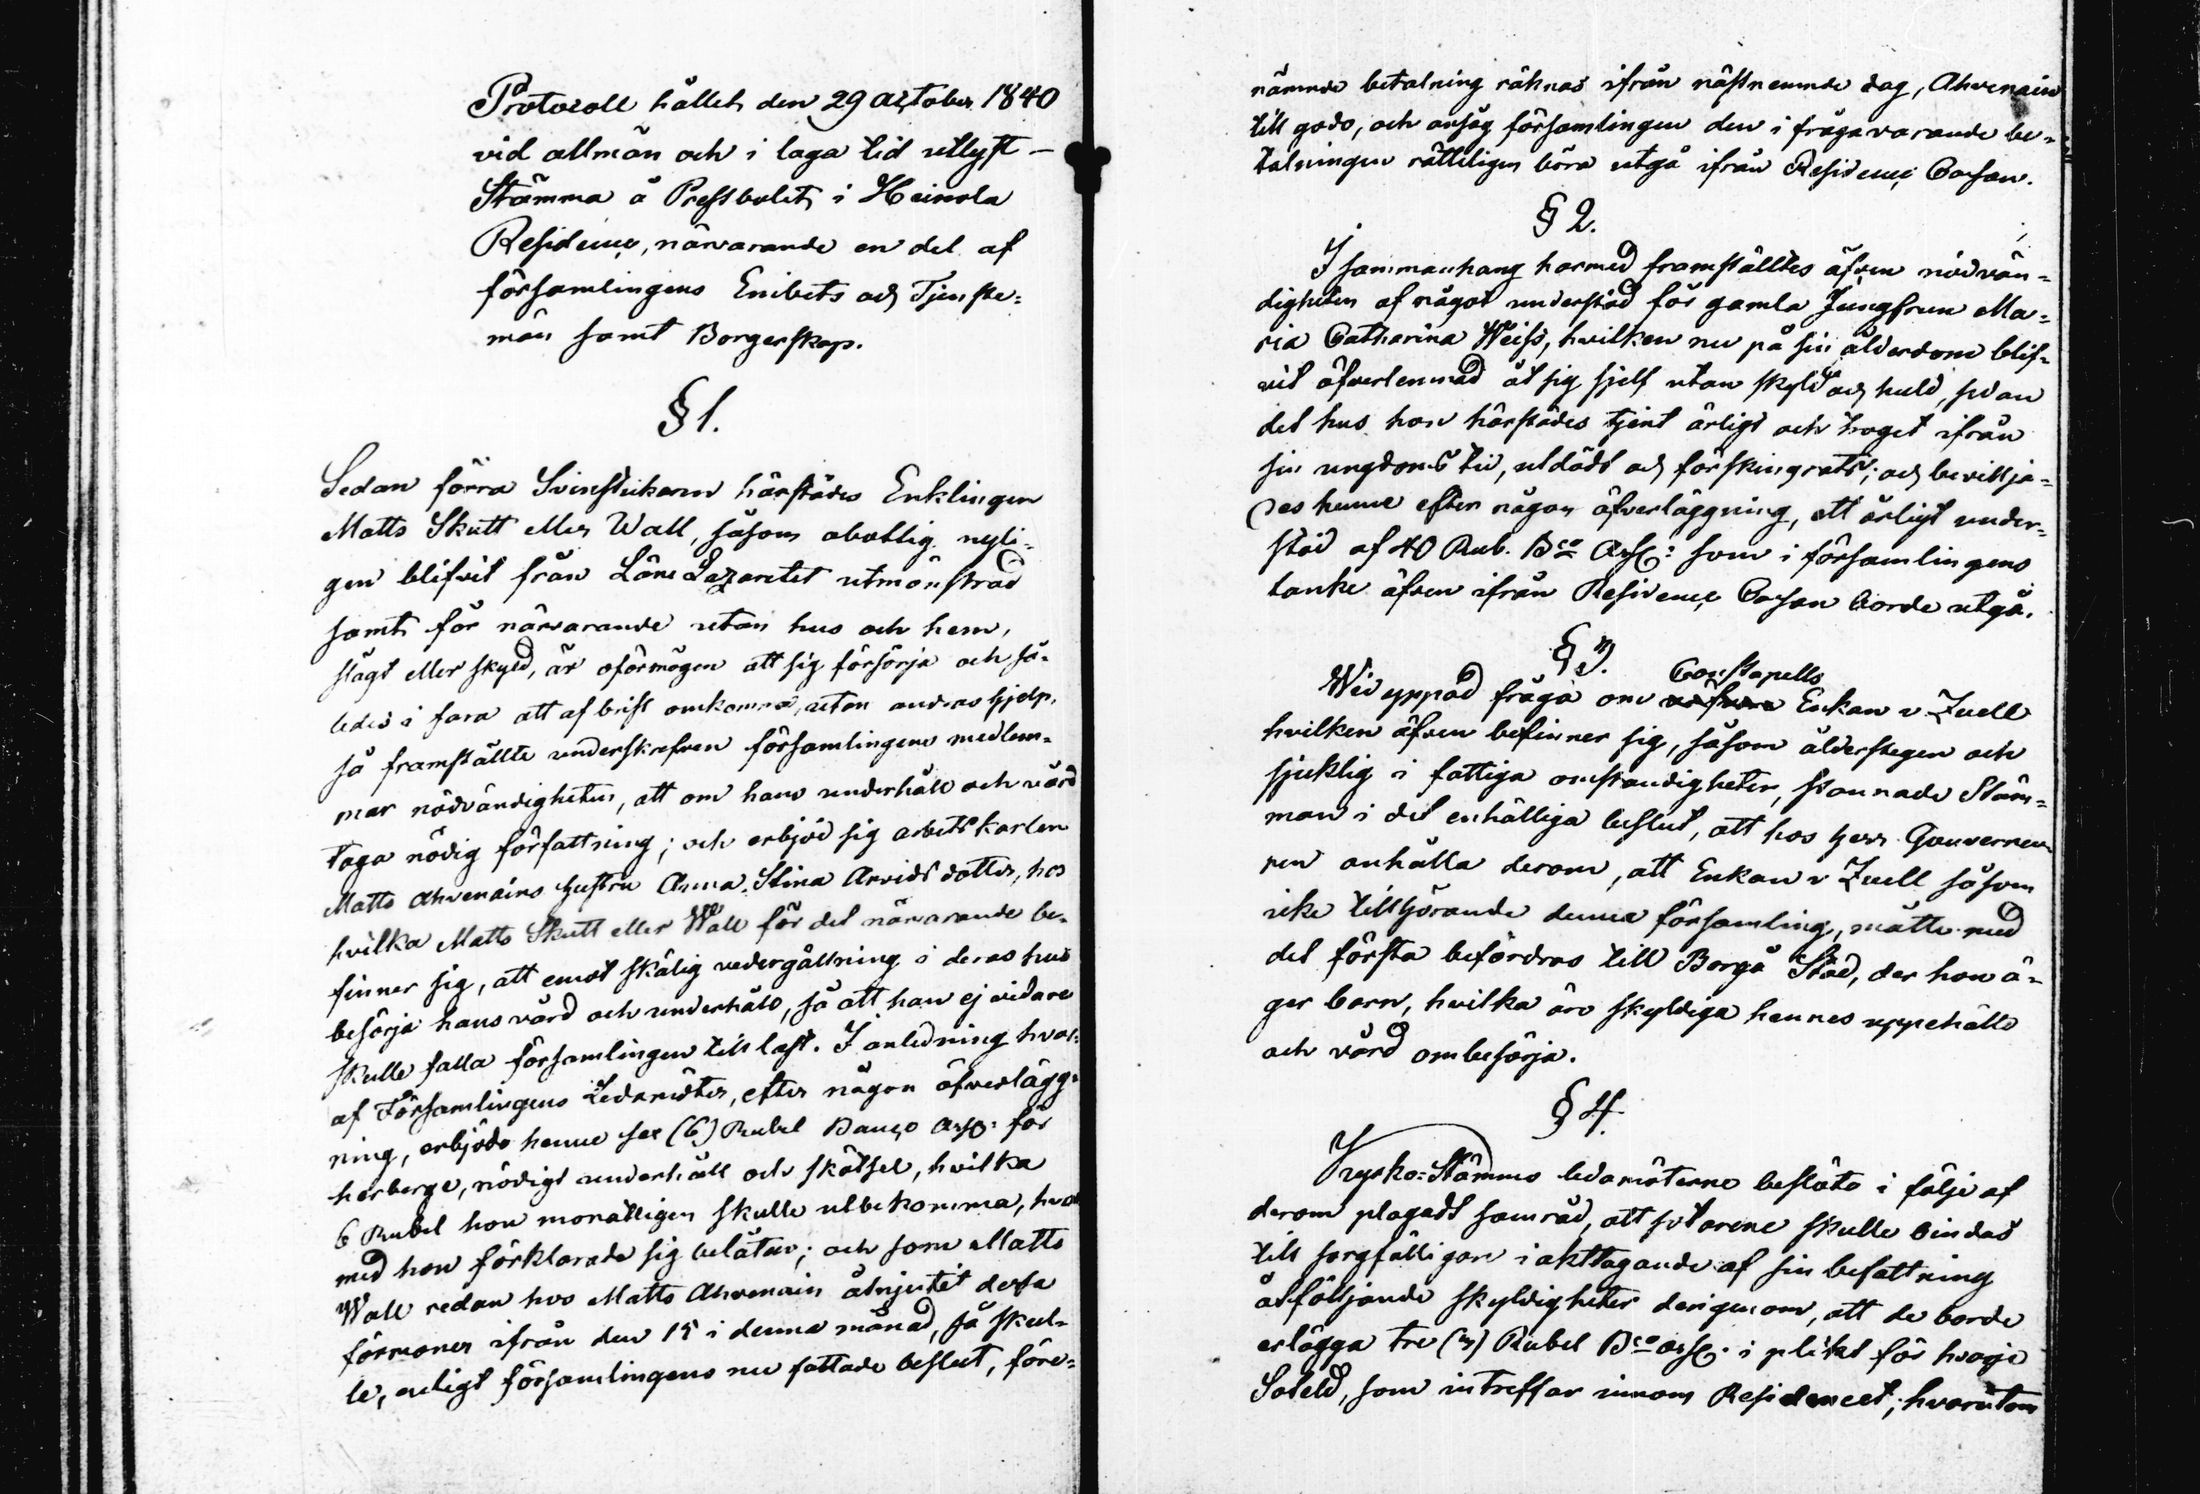 Protocoll hållet den 29 October 1840
vid allmän och i laga tid utlyst
Stämma å Prestbolet i Heinola
Residence, närvarande en del af
församlingens Embets och Tjenste=
män samt Borgerskap.
§ 1.
Sedan förra Svinstukarn härstädes Enklingen
Matts Skutt eller Wall, såsom obotlig nyli=
gen blifvit från Läns Lazarettet utmönstrad
samt för närvarande utan hus och hem,
slägt eller skyld, är oförmögen att sig försörja och så=
ledes i fara att af brist omkomma, utan andras hjelp,
så framställte underskrefven församlingens medlem=
mar nödvändigheten, att om hans underhåll och vård
taga nödig författning; och erbjöd sig arbetskarlen
Matts Ahvenains hustru Anna Stina Arvidsdotter, hos
hvilka Matts Skutt eller Wall för det närvarande be=
finner sig, att emot skälig vedergällning i deras hus
besörja hans vård och underhåll, så att han ej vidare
skulle falla församlingen till last. I anledning hvar=
af Församlingens Ledamöter, efter någon öfverlägg=
ning, erbjödo henne sex (6) Rubel Banco Assg: för
herberge, nödigt underhåll och skötsel, hvilka
6 Rubel hon månatligen skulle utbekomma, hvar
med hon förklarade sig belåten; och som Matts
Wall redan hos Matts Ahvenain åtnjutit dessa
förmoner ifrån den 15 i denna månad, så skul=
le, enligt församlingens nu fattade beslut, före=
nämnde betalning räknas ifrån nästnemnde dag, Ahvenain
till godo, och ansåg församlingen den i frågavarande be=
talningen rätteligen böra utgå ifrån Residence Cassan.
§ 2.
I sammanhang harmed framställtes äfven nödvän=
digheten af något understöd för gamla Jungfrun Ma=
ria Catharina Weiss, hvilken nu på sin ålderdom blif=
vit öfverlemnad åt sig sjelf utan skyld och huld, sedan
det hus hon härstädes tjent ärligt och troget ifrån
sin ungdoms tid, utdödt och förskingrats; och bevilja=
des henne efter någon öfverläggning, ett årligt under=
stöd af 40 Rub. Bco Assg: som i församlingens
tanke äfven ifrån Residence Cassan borde utgå.
§ 3.
Constapells
Wid yppad fråga om Enkan v Zuell
hvilken äfven befinner sig, såsom ålderstegen och
sjuklig i fattiga omständigheter, stannade Stäm=
man i det enhälliga beslut, att hos Herr Gouverneu=
ren anhålla derom, att Enkan v Zuell såsom
icke tillhörande denna församling, måtte med
det första befordras till Borgå Stad, der hon ä=
ger barn, hvilka äro skyldiga hennes uppehälle
och vård ombesörja.
§ 4.
Kyrko=Stämmo ledamöterne beslöto i följe af
derom plägadt samråd, att sotarene skulle bindas
till sorgfälligare iakttagande af sin befattning
åtföljande skyldigheter derigenom, att de borde
erlägga tre (3) Rubel Bco assg. i plikt för hvarje
Soteld, som intreffar innom Residencet; hvarutom